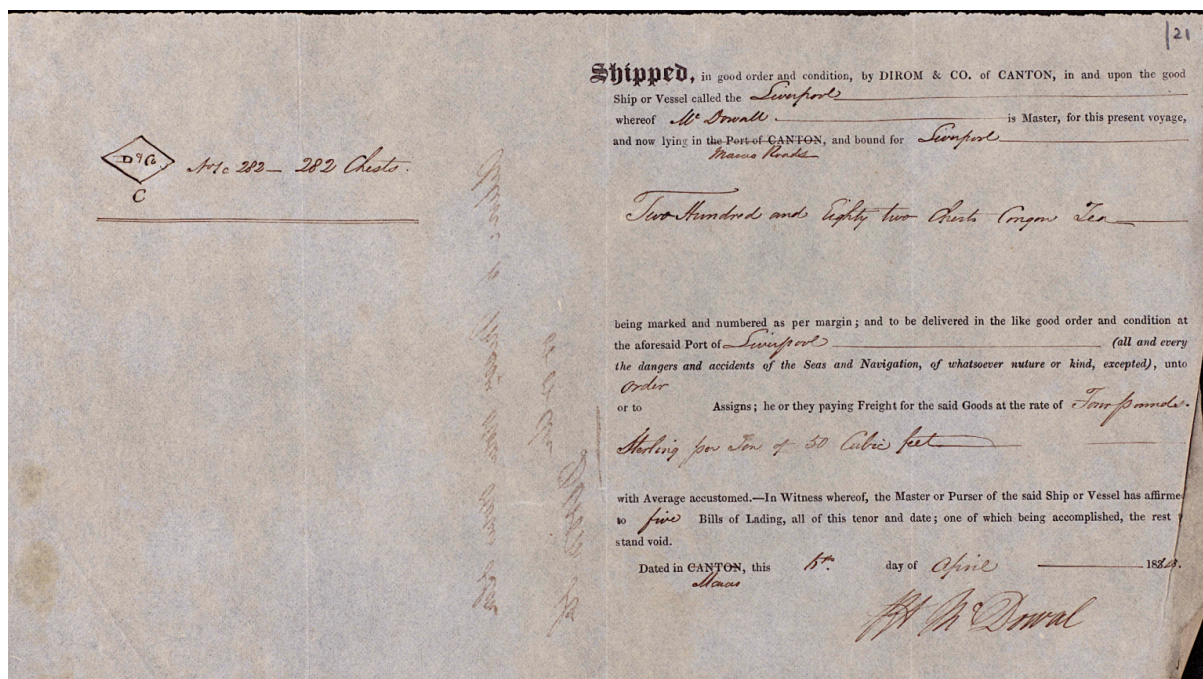 121
D & Co
C
No 1 @ 282 — 282 Chests.
Shipped, in good order and condition, by DIROM & CO. of CANTON, in and upon the good
Ship or Vessel called the Liverpool
whereof Mc Dowall is Master, for this present voyage,
and now lying in the Port of CANTON, and bound for Liverpool
Macao Roads
Two Hundred and Eighty two Chests Congou Tea
being marked and numbered as per margin; and to be delivered in the like good order and condition at
the aforesaid Port of Liverpool (all and every
the dangers and accidents of the Seas and Navigation, of whatsoever nuture or kind, excepted), unto
order
or to Assigns; he or they paying Freight for the said Goods at the rate of Four pounds.
Sterling per Ton of 50 Cubic feet
with Average accustomed.—In Witness whereof, the Master or Purser of the said Ship or Vessel has affirmed
to five Bills of Lading, all of this tenor and date; one of which being accomplished, the rest
stand void.
Dated in CANTON, this day of April
Macao
Mc Dowal